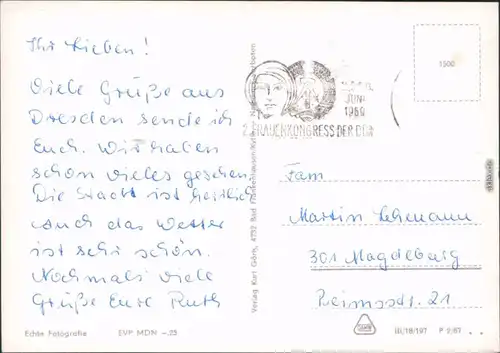 Ihr Lieben!
Viele Grüße aus
Dresden sende ich
Euch. Wir haben
schon vieles gesehen.
Die Stadt ist herrlich
und das Wetter
ist sehr schön.
Nochmals viele
Grüße Eure Ruth
Echte Fotografie EVP MDN -.25
Verlag Kurt Görn, 4732 Bad Frankenhausen/Kyffh.
JUNI
1969
2. FRAUENKONGRESS DER DDR
1500
Fam
Martin Lehmann
301 Magdeburg
Reimsstr. 21
III/18/197 P 2/67